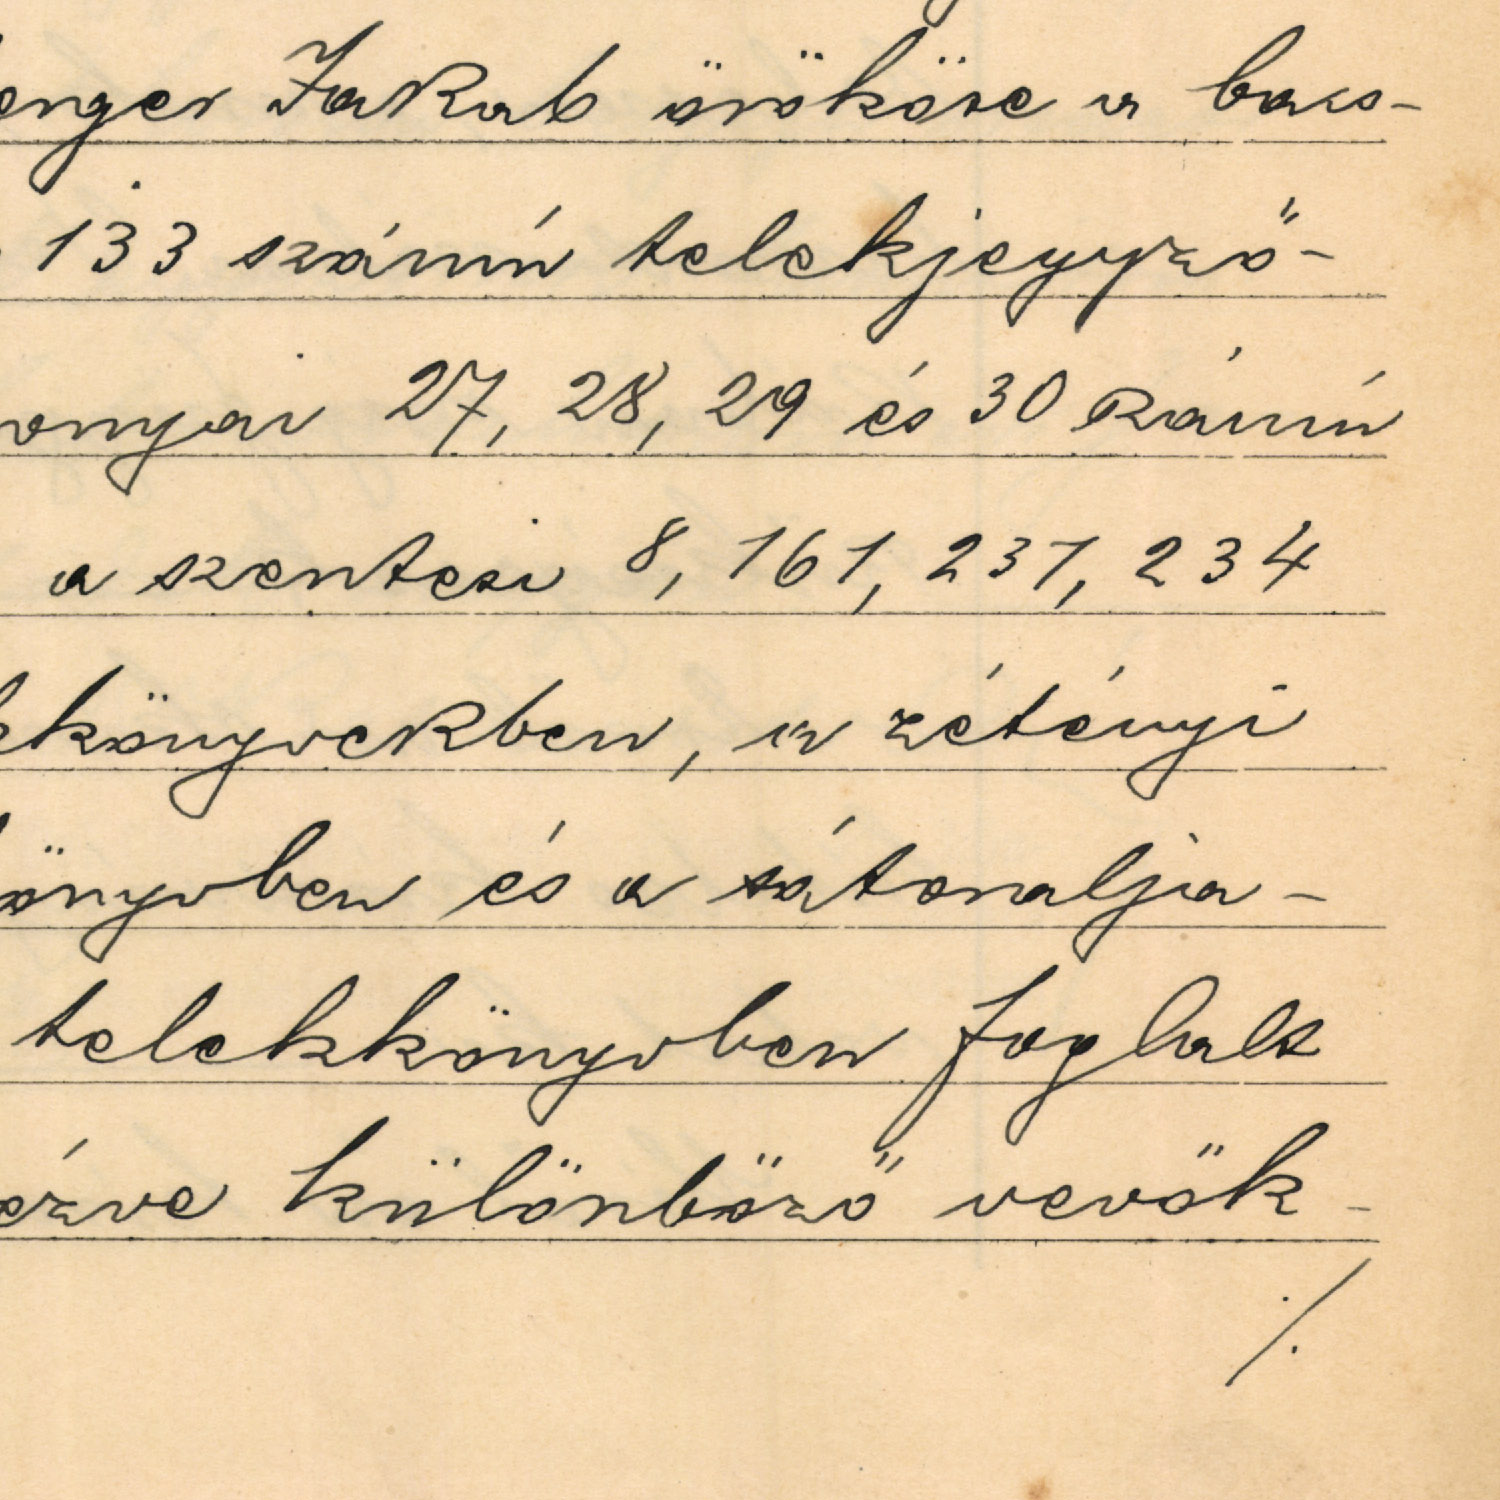 enger Jakab örököse a bacs-
133 számú telekjegyző-
onyai 27, 28, 29 és 30 számú
a szentesi 8, 161, 231, 234
kkönyvekben, a zétényi
önyvben és a sátoralja-
telekkönyvben foglalt
ezve különböző vevők-
./.